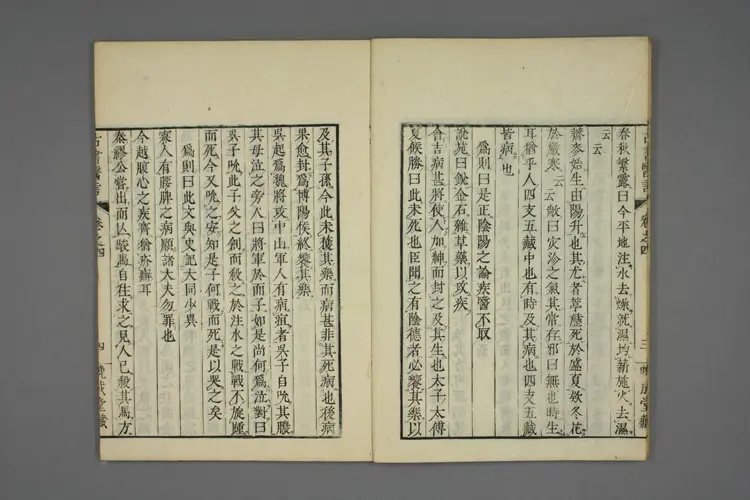 春秋繁露曰今平地注水去燥就濕均薪施火去濕
云云
薺麥始生由陽升也其尤者葶藶死於盛夏款冬花
於嚴寒云云敵曰灾沴之氣其常存邪曰無也時生
耳猶乎人四支五藏中也有時及其病也四支五藏
皆病也
爲則曰是正陰陽之論疾醫不取
說苑曰銳金石雜草藥以攻疾
會吉病甚將使人加紳而封之及其生也太子太傅
夏侯勝曰此未死也臣聞之有陰德者必饗其樂以
古書醫言 卷之四 三
及其子孫今此未獲其樂而病甚非其死病也後病
果愈封爲博陽侯終饗其樂
吳起爲魏將攻中山軍人有病疽者吳子自吮其膿
其母泣之旁人曰將軍於而子如是尚何爲泣對曰
吳子吮此子父之創而殺之於注水之戰戰不旋踵
而死今又吮之安知是子何戰而死是以哭之矣
爲則曰此文與史記大同少異
寡人有腰脾之病願諸大夫勿罪也
今越腹心之疾齊猶疥癬耳
秦繆公嘗出而亾駿馬自往求之見人已殺其馬方
卷之四 四